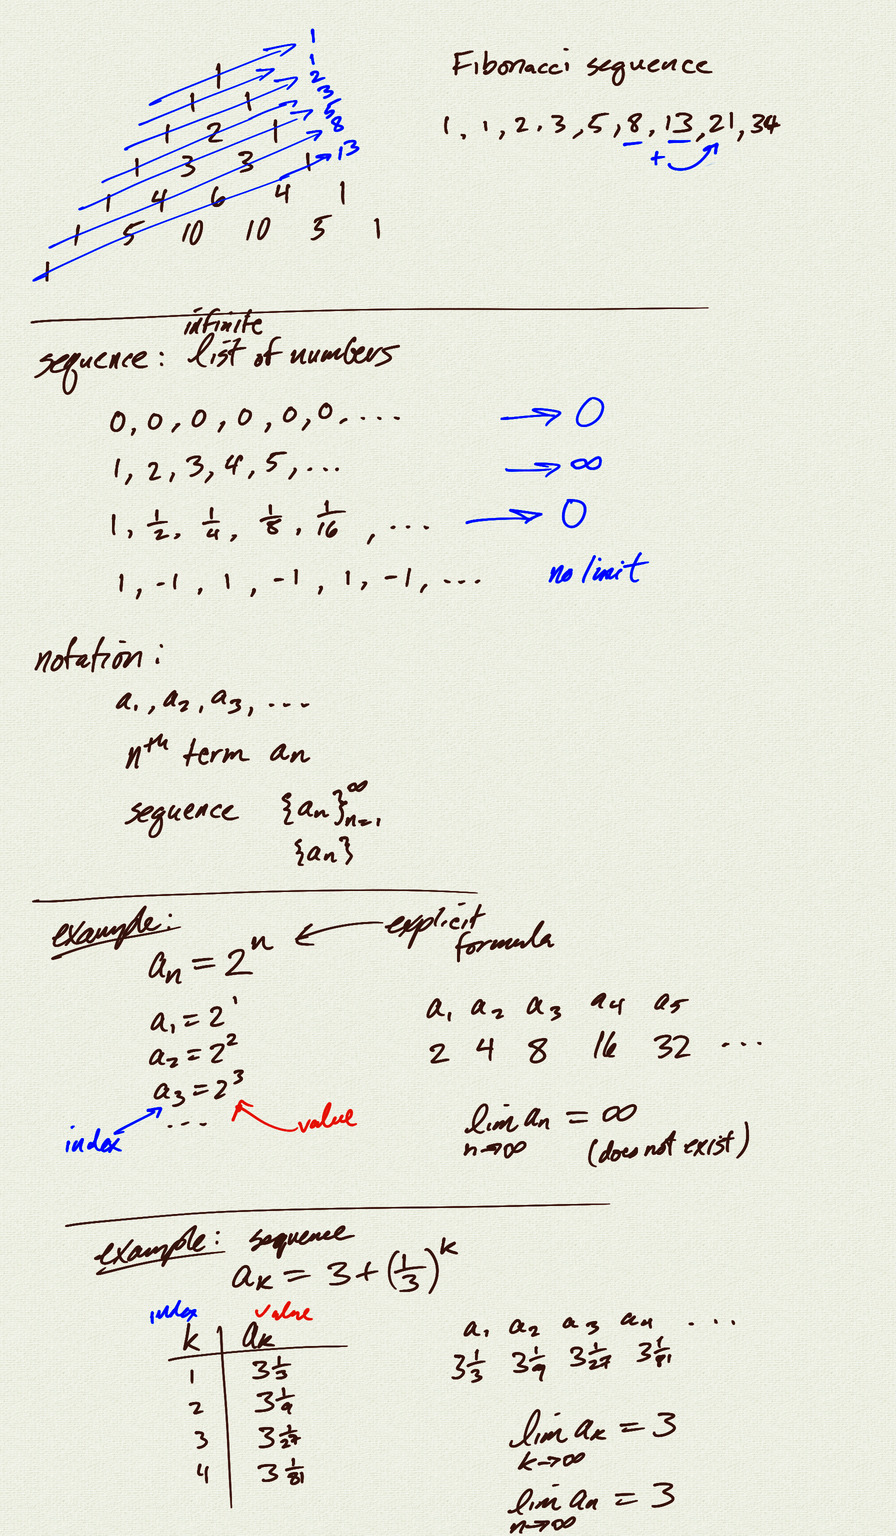 1
1
2
3
5
8
13
1
1 1
1 2 1
1 3 3 1
1 4 6 4 1
1 5 10 10 5 1
1
Fibonacci sequence
1, 1, 2, 3, 5, 8, 13, 21, 34
+
infinite
sequence: list of numbers
0, 0, 0, 0, 0, 0, .... → 0
1, 2, 3, 4, 5, ... → ∞
1, 1/2, 1/4, 1/8, 1/16, ... → 0
1, -1, 1, -1, 1, -1, ... no limit
notation:
a₁, a₂, a₃, ...
nth term aₙ
sequence {aₙ}∞ₙ₌₁
{aₙ}
example:
aₙ = 2ⁿ ← explicit
formula
a₁ = 2¹
a₂ = 2²
a₃ = 2³
...
index
value
a₁ a₂ a₃ a₄ a₅
2 4 8 16 32 ...
lim aₙ = ∞
n→∞ (does not exist)
example: sequence
aₖ = 3 + (1/3)ᵏ
index value
k aₖ
1 3 1/3
2 3 1/9
3 3 1/27
4 3 1/81
a₁ a₂ a₃ a₄ ...
3 1/3 3 1/9 3 1/27 3 1/81
lim aₖ = 3
k→∞
lim aₙ = 3
n→∞